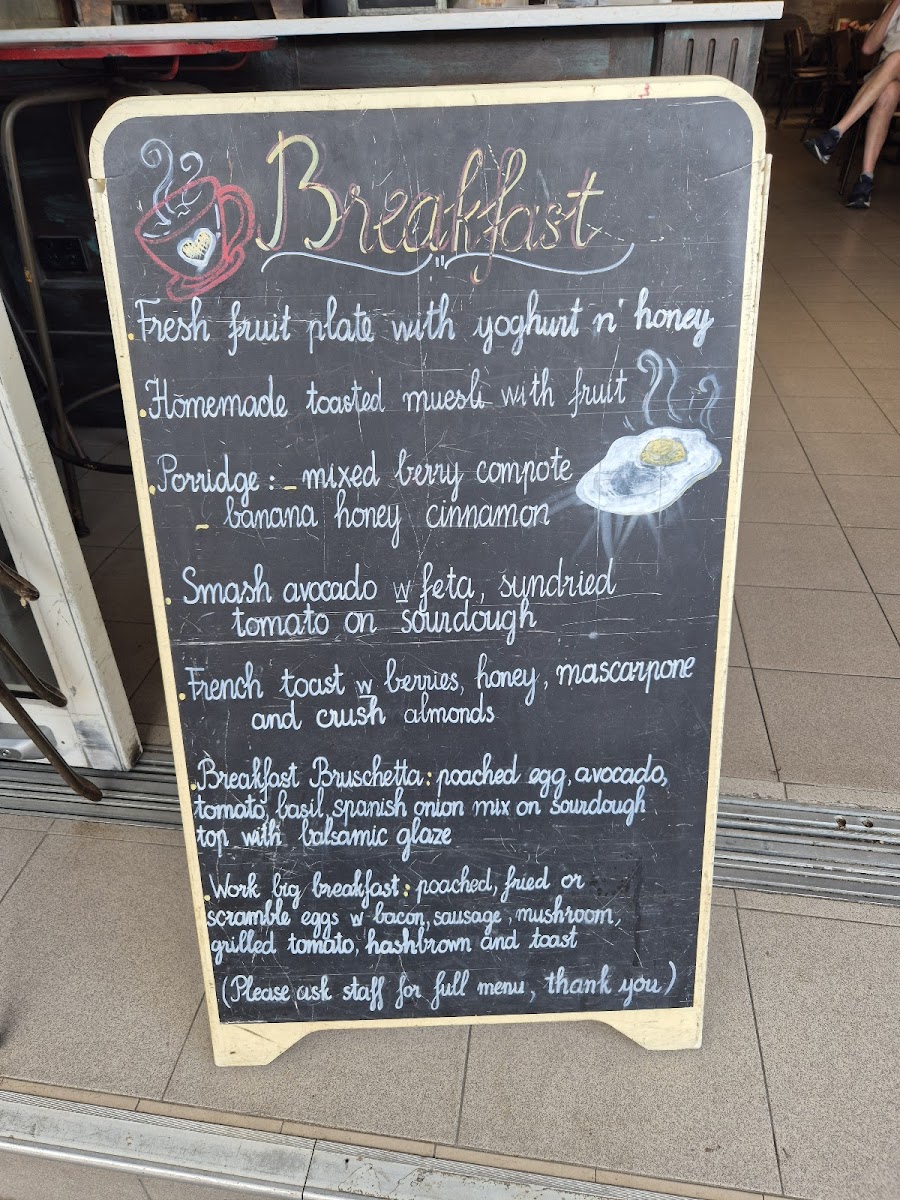 Breakfast
Fresh fruit plate with yoghurt n' honey
Homemade toasted muesli with fruit
Porridge: - mixed berry compote
- banana honey cinnamon
Smash avocado w feta, sundried
tomato on sourdough
French toast w berries, honey, mascarpone
and crush almonds
Breakfast Bruschetta: poached egg, avocado,
tomato, basil, spanish onion mix on sourdough
top with balsamic glaze
Work big breakfast: poached, fried or
scramble eggs w bacon, sausage, mushroom,
grilled tomato, hashbrown and toast
(Please ask staff for full menu, thank you)